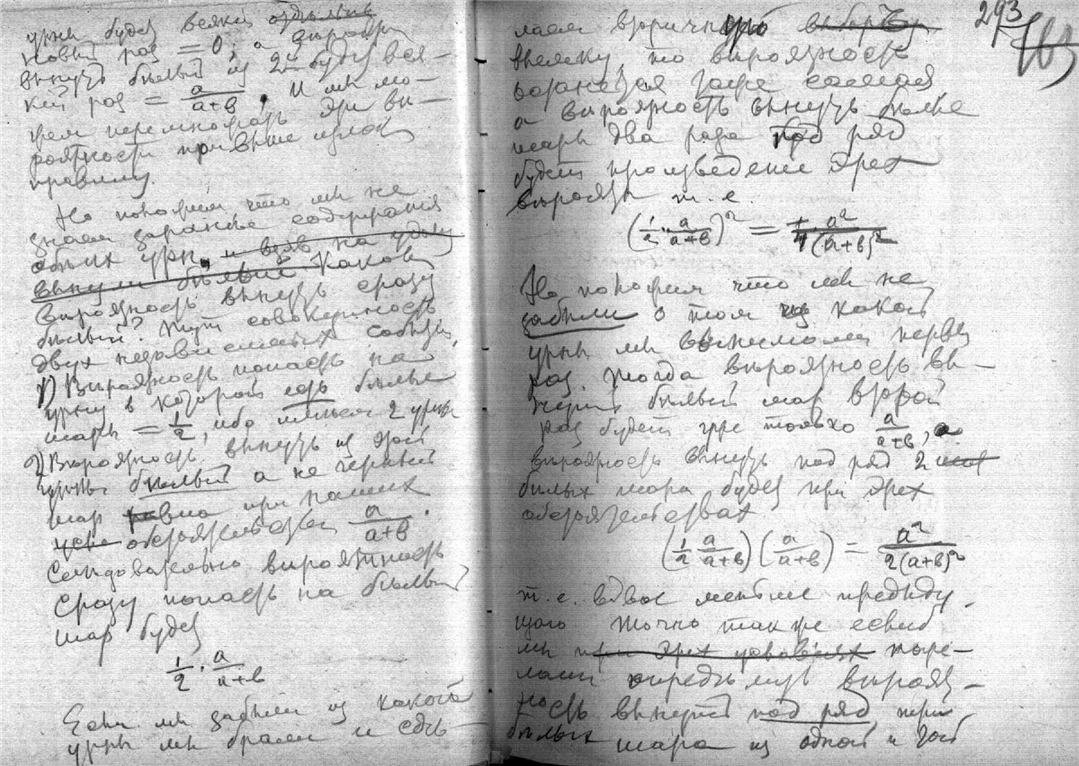 урны будет всякий отдельный
новый раз = 0, а
вынуть белый из 2й будет вся-
кий раз = a/(a+b). И мы мо-
жем перемножать эти ви-
роятности
правилу.
Но положим что мы не
знаем заранее содержания
обеих урн и взяв на удачу
вынули белый Какова
вироятность вынуть сразу
белый? Тут совокупность
двух независимых событий
1) Вироятность попасть на
урну в которой есть белые
шары = 1/2, ибо имеем 2 урны
2) Вироятность вынуть из этой
урны белый а не черный
шар равна при наших
обстоятельствах a/(a+b).
Следовательно вироятность
сразу попасть на белый
шар будет
1/2 · a/(a+b)
Если мы забыли из какой
урны мы брали и сде-
293
лаем вторичную выборку
вироятность
останется также самая
а вироятность вынуть белые
шары два раза под ряд
будет произведение этех
вироят т.е.
(1/2 · a/(a+b))² = 1/4 a²/(a+b)²
Но положим что мы не
забыли о том из какой
урны мы вынимали первый
раз. Тогда вироятность вы-
белый шар второй
раз будет уже только a/(a+b), а
вироятность вынуть под ряд 2
белых шара будет при этех
обстоятельствах
(1/2 a/(a+b)) (a/(a+b)) = a²/2(a+b)²
т.е. вдвое меньше предыду-
щого Точно также если б
мы при этех условиях поже-
лали определить вироят-
ность вынуть под ряд три
белых шара из одной и той